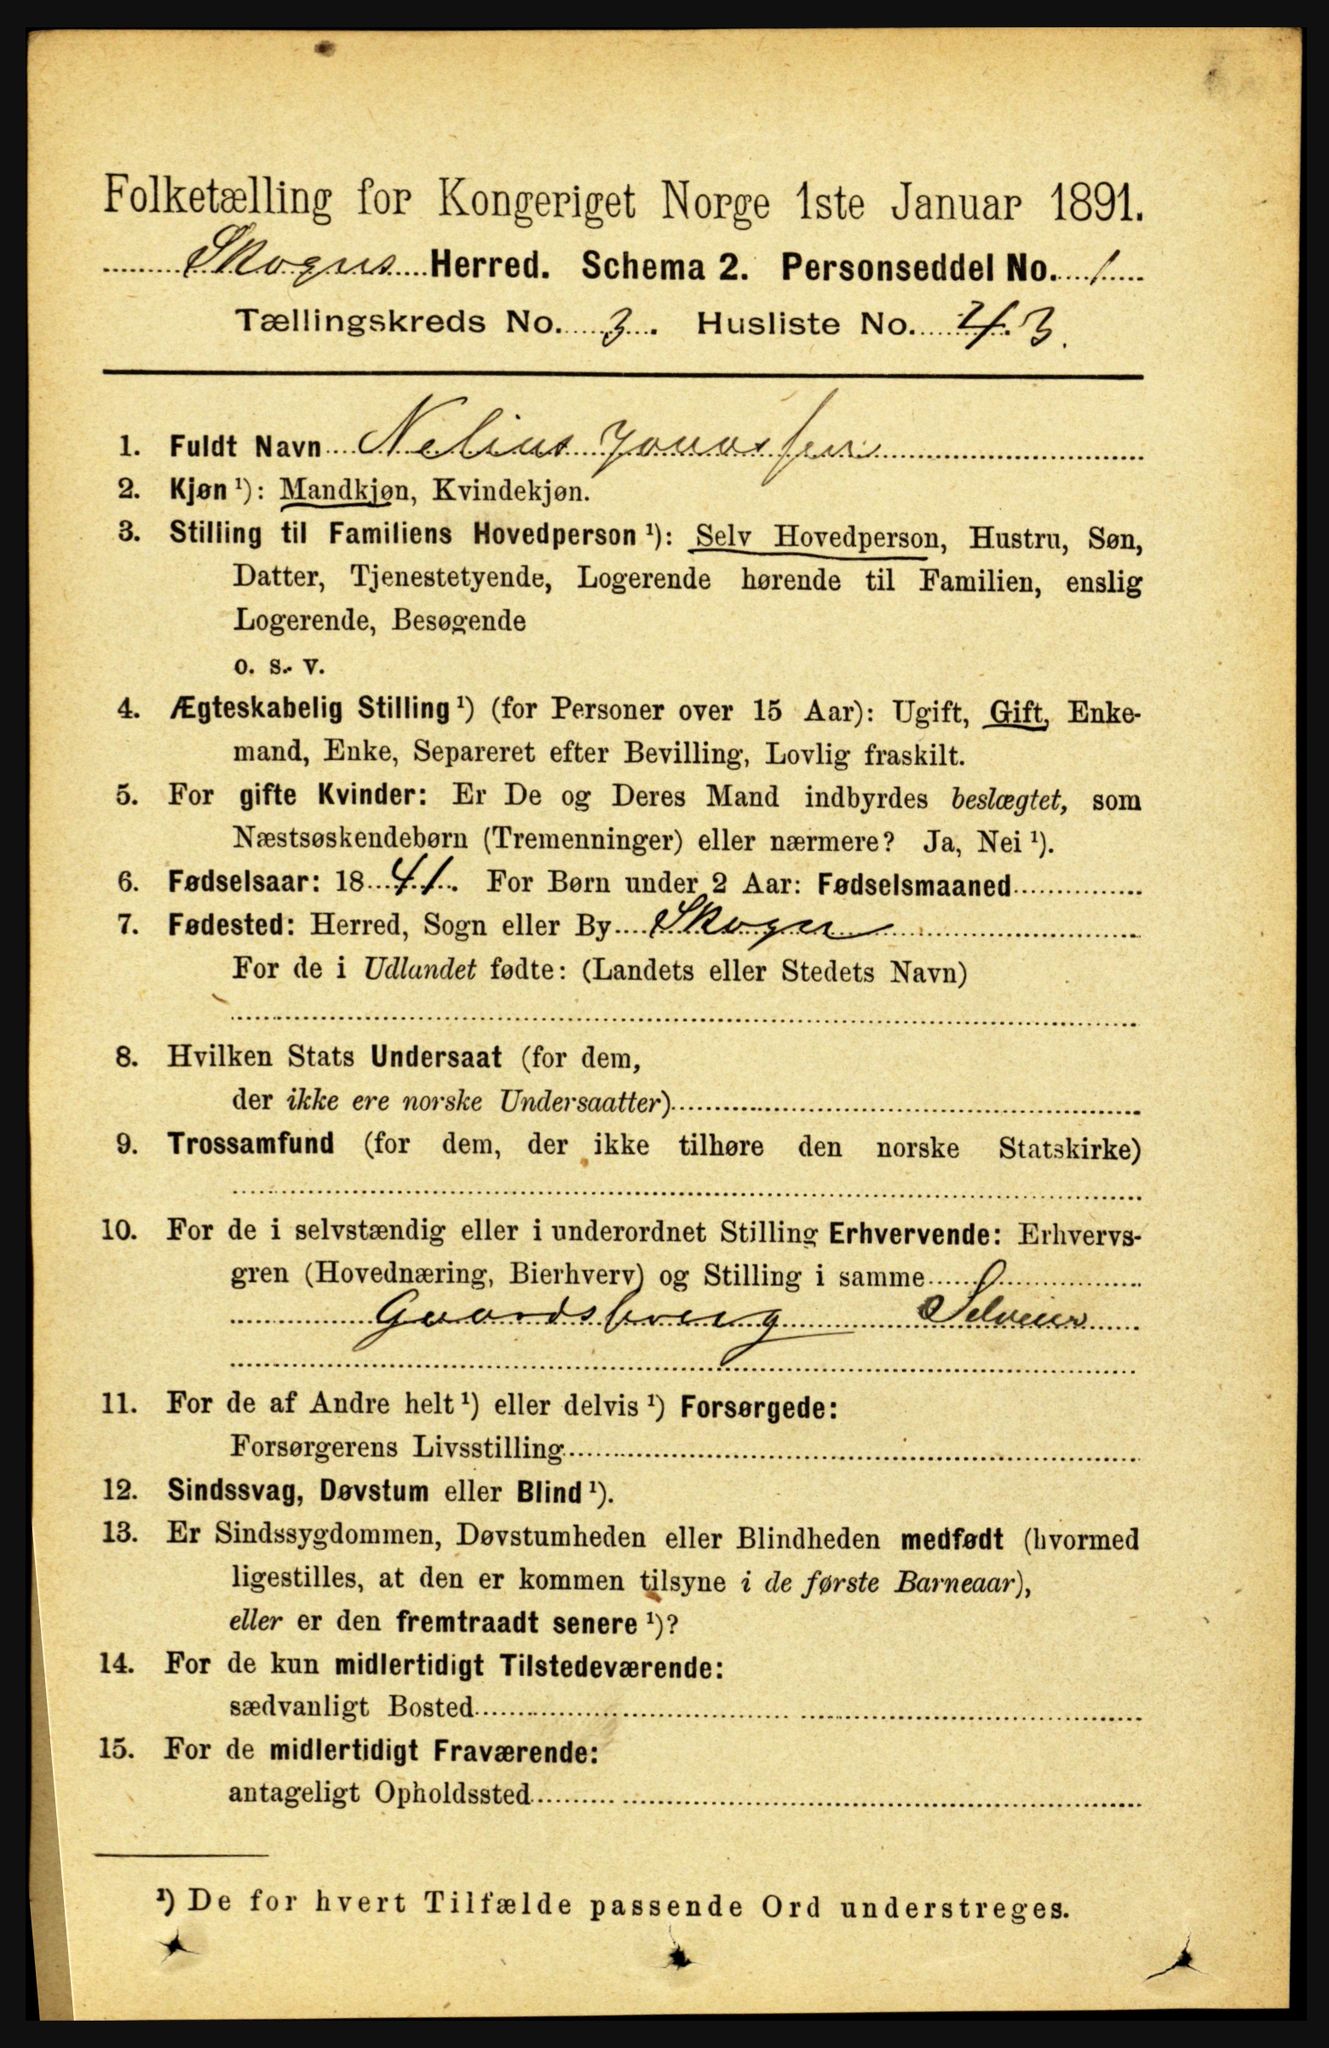 Folketælling for Kongeriget Norge 1ste Januar 1891.
Skogns Herred. Schema 2. Personseddel No. 1
Tællingskreds No. 3. Husliste No. 43.
1. Fuldt Navn Nelius Jonassen
2. Kjøn ¹): Mandkjøn, Kvindekjøn.
3. Stilling til Familiens Hovedperson ¹): Selv Hovedperson, Hustru, Søn,
Datter, Tjenestetyende, Logerende hørende til Familien, enslig
Logerende, Besøgende
o. s. v.
4. Ægteskabelig Stilling ¹) (for Personer over 15 Aar): Ugift, Gift, Enke-
mand, Enke, Separeret efter Bevilling, Lovlig fraskilt.
5. For gifte Kvinder: Er De og Deres Mand indbyrdes beslægtet, som
Næstsøskendebørn (Tremenninger) eller nærmere? Ja, Nei ¹).
6. Fødselsaar: 1841. For Børn under 2 Aar: Fødselsmaaned
7. Fødested: Herred, Sogn eller By Skogn
For de i Udlandet fødte: (Landets eller Stedets Navn)
8. Hvilken Stats Undersaat (for dem,
der ikke ere norske Undersaatter)
9. Trossamfund (for dem, der ikke tilhøre den norske Statskirke)
10. For de i selvstændig eller i underordnet Stilling Erhvervende: Erhvervs-
gren (Hovednæring, Bierhverv) og Stilling i samme
Gaardsbrug Selveier
11. For de af Andre helt ¹) eller delvis ¹) Forsørgede:
Forsørgerens Livsstilling
12. Sindssvag, Døvstum eller Blind ¹).
13. Er Sindssygdommen, Døvstumheden eller Blindheden medfødt (hvormed
ligestilles, at den er kommen tilsyne i de første Barneaar),
eller er den fremtraadt senere ¹)?
14. For de kun midlertidigt Tilstedeværende:
sædvanligt Bosted
15. For de midlertidigt Fraværende:
antageligt Opholdssted
¹) De for hvert Tilfælde passende Ord understreges.